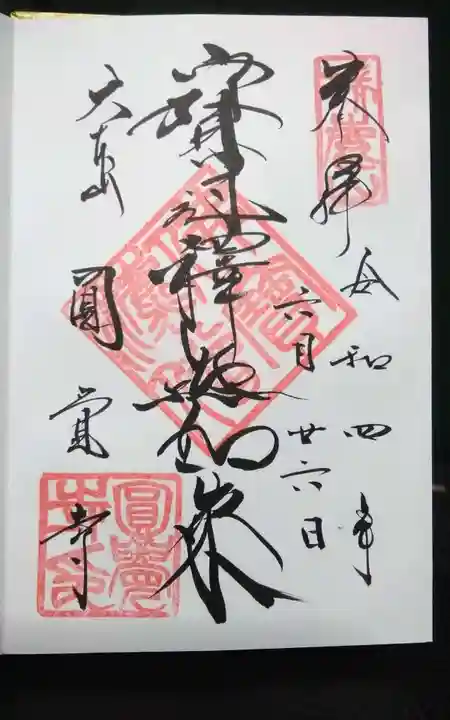 奉拝 令和四年
六月廿六日
寶冠釋迦如来
大本山 圓覚寺